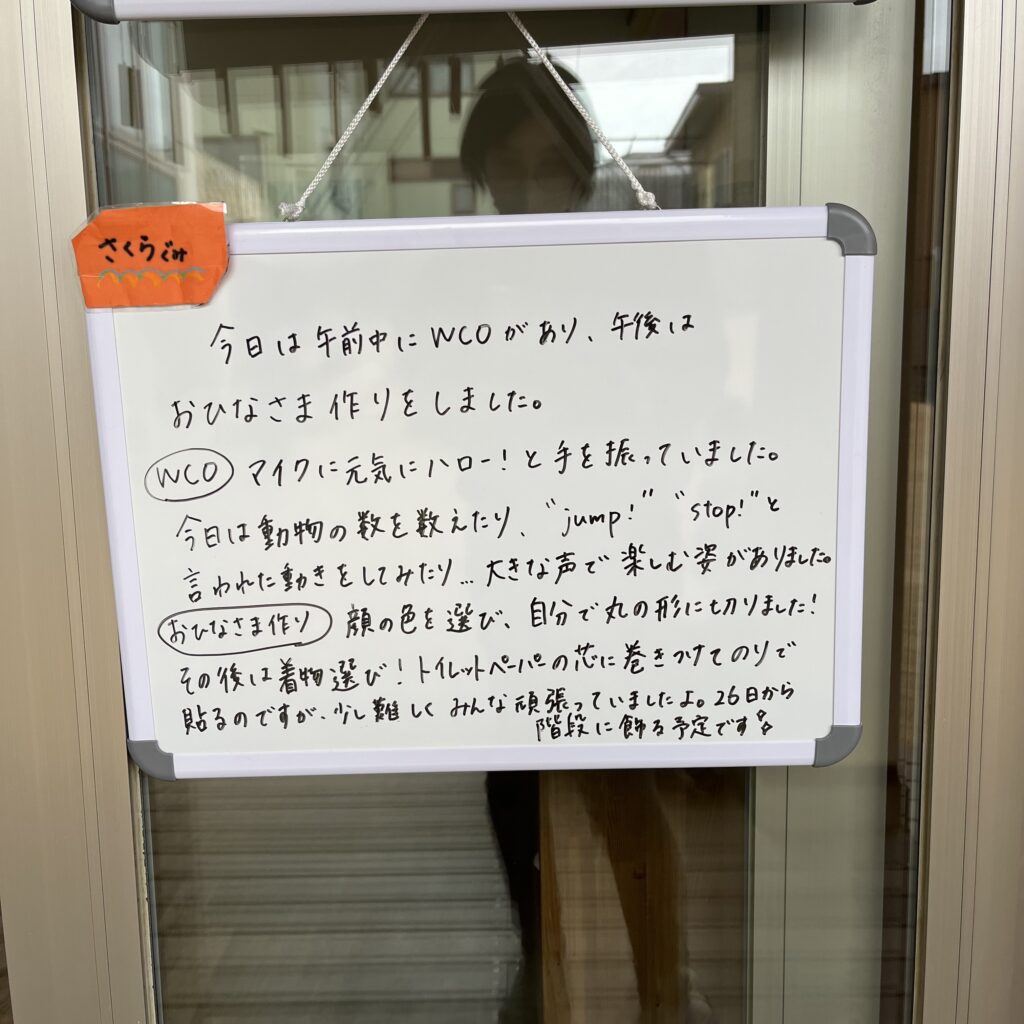 さくらぐみ
今日は午前中にWCOがあり、午後は
おひなさま作りをしました。
WCO マイクに元気にハロー！と手を振っていました。
今日は動物の数を数えたり、“jump!” “stop!”と
言われた動きをしてみたり…大きな声で楽しむ姿がありました。
おひなさま作り 顔の色を選び、自分で丸の形に切りました！
その後は着物選び！トイレットペーパーの芯に巻きつけてのりで
貼るのですが、少し難しくみんな頑張っていましたよ。26日から
階段に飾る予定です